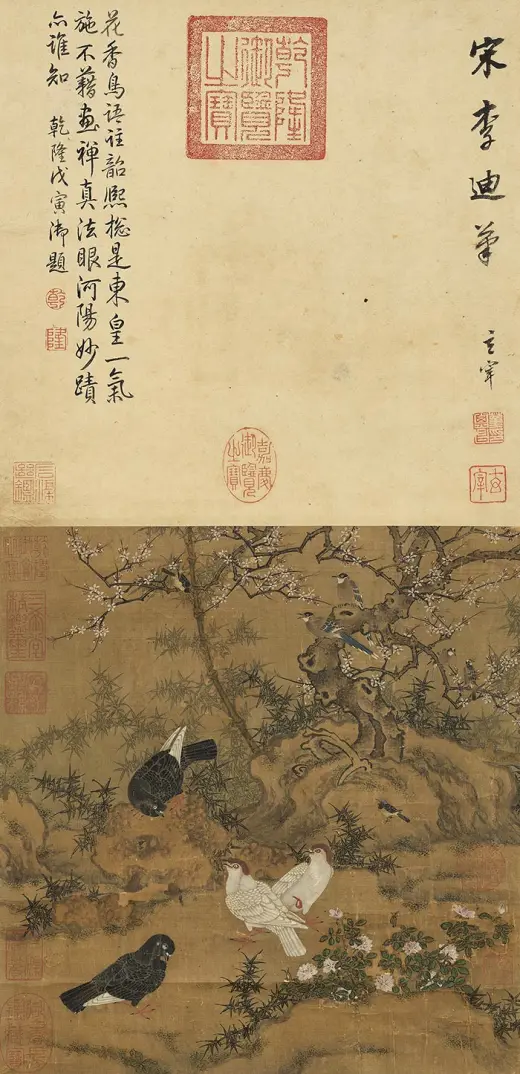 宋李迪筆
玄宰
玄宰
乾隆御覽之寶
嘉慶御覽之寶
花香鳥語註韶熙摠是東皇一氣
施不藉畫禪真法眼河陽妙蹟
亦誰知 乾隆戊寅御題
乾
隆